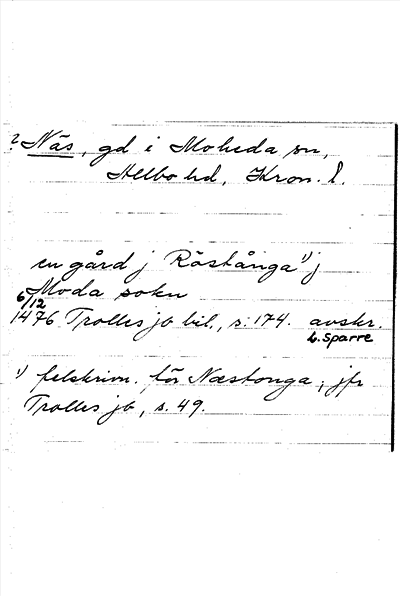 ? Näs, gd i Moheda sn,
Allbo hd, Kron. l.
en gård j Röstånga ¹) j
Moda sokn
6/12
1476 Trolles jb bil., s. 174. avskr.
L. Sparre
¹) felskrivn. för Næstonga, jfr
Trolles jb, s. 49.